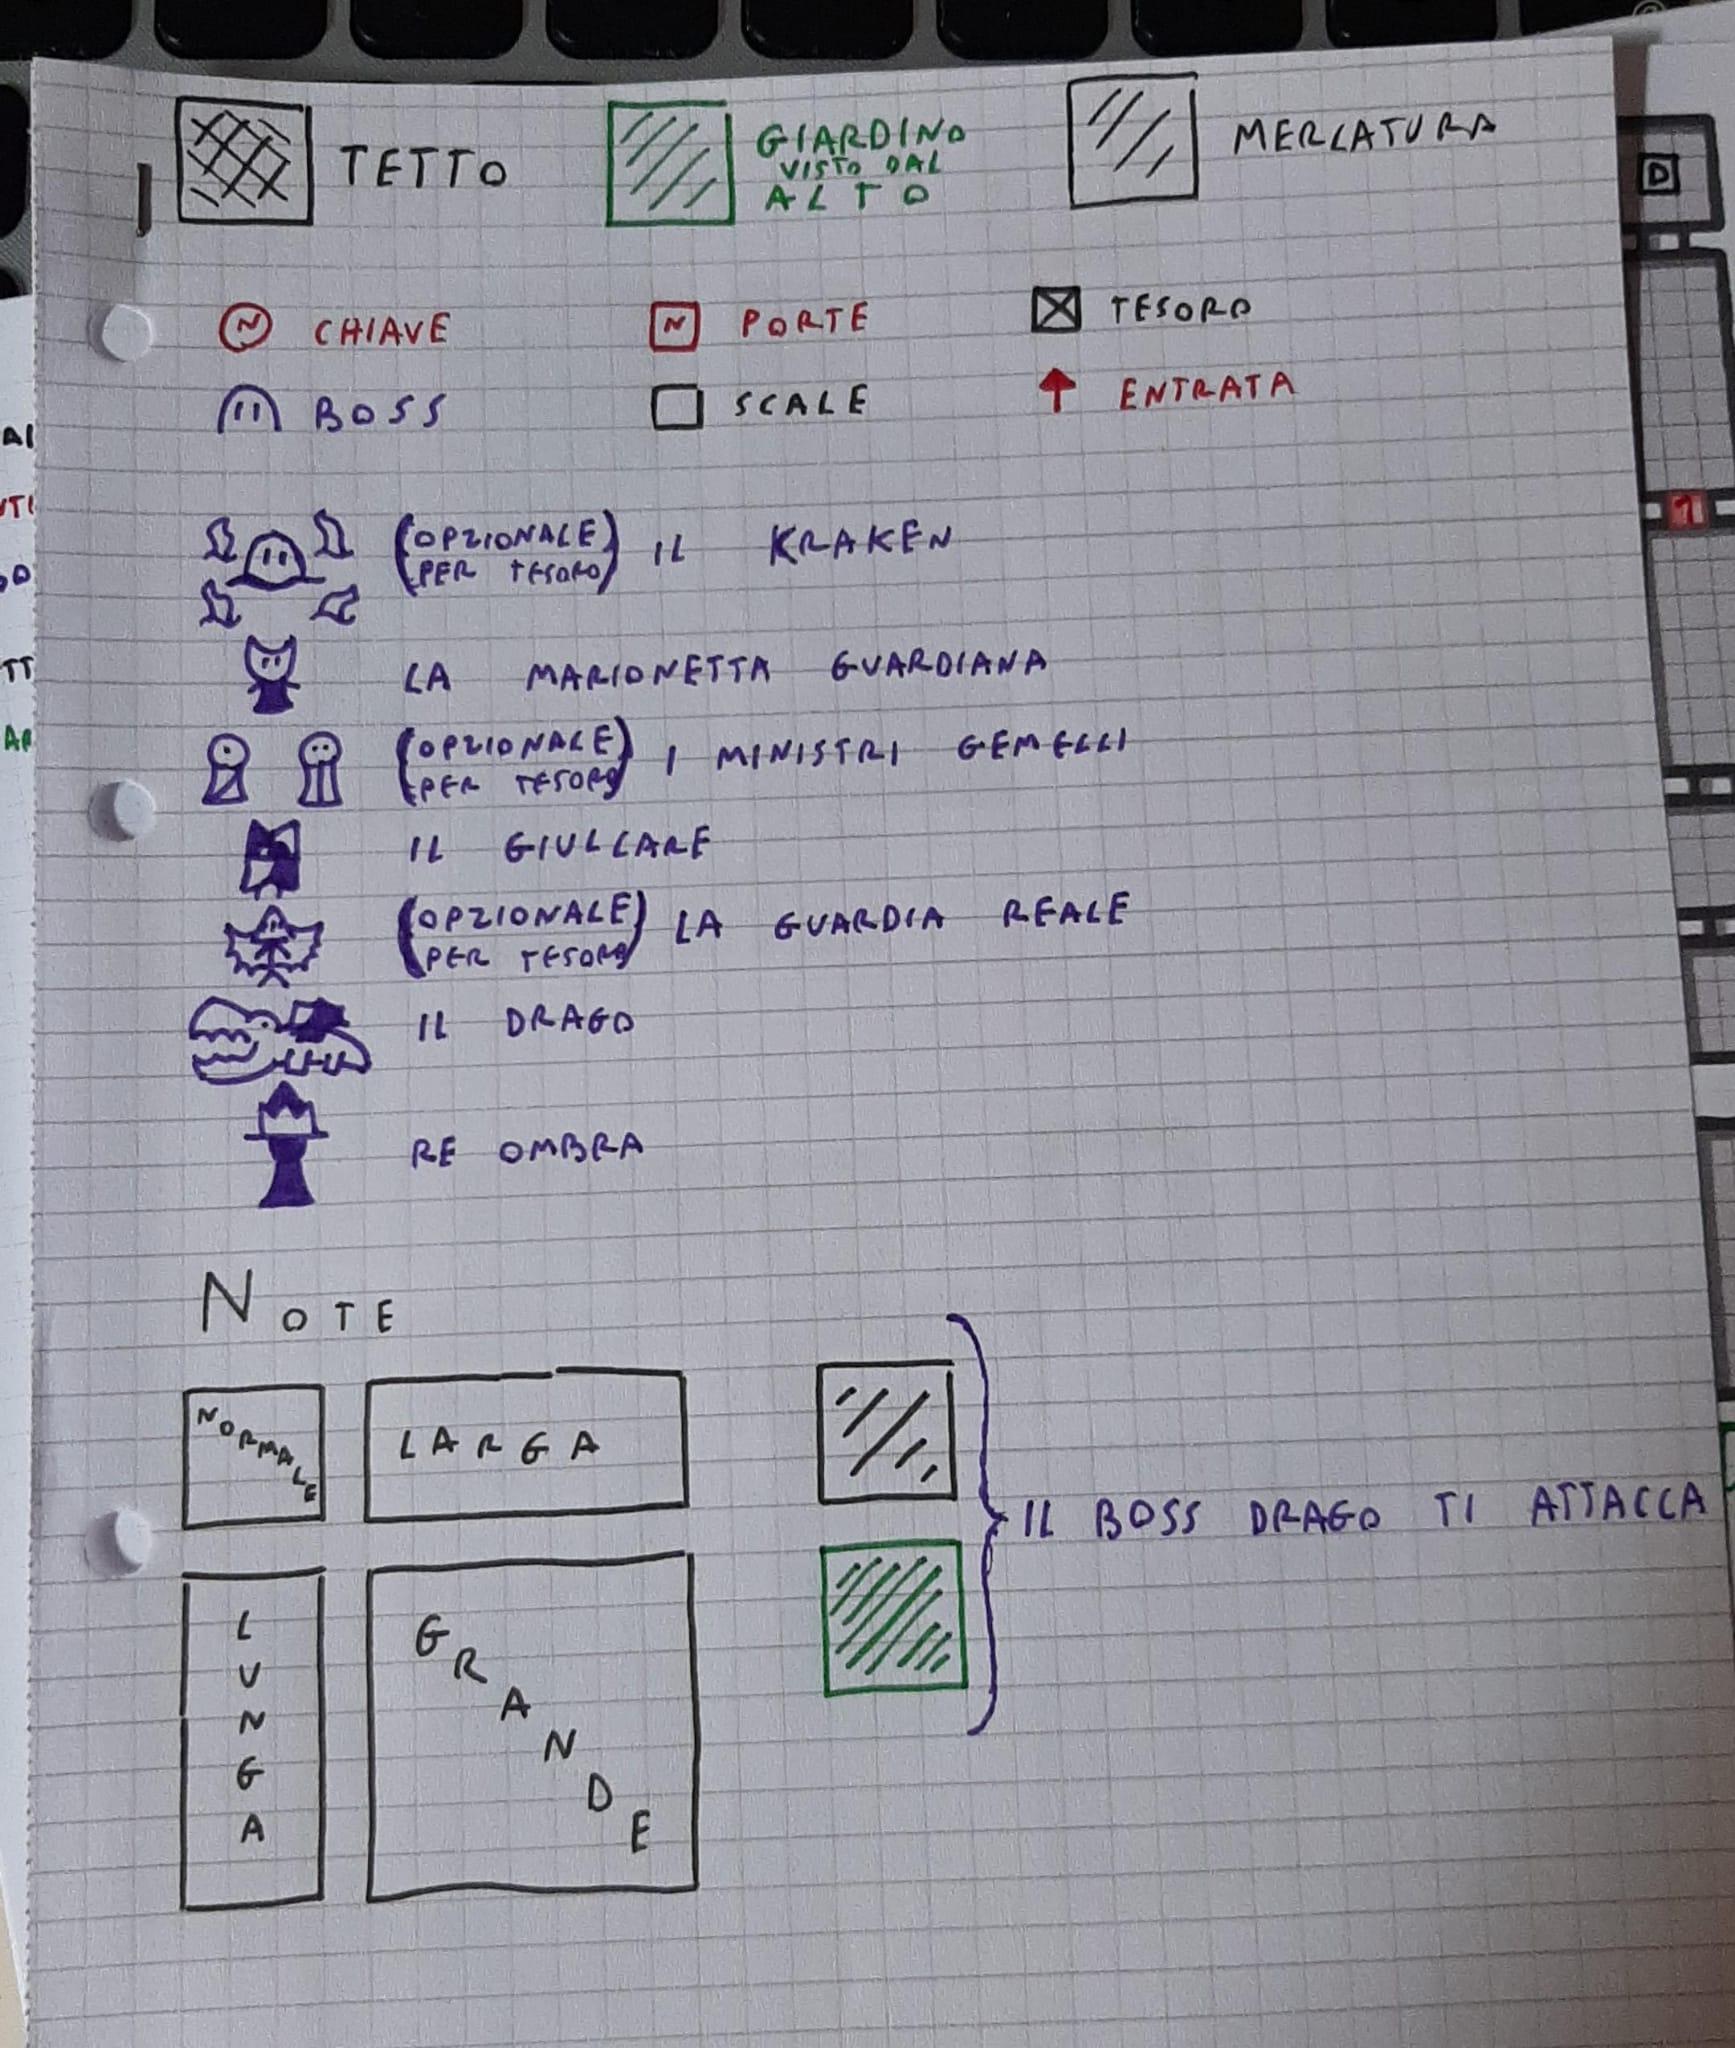 TETTO
GIARDINO
VISTO DAL
ALTO
MERCATURA
D
N CHIAVE
N PORTE
TESORO
BOSS
SCALE
ENTRATA
1
(OPZIONALE PER TESORO) IL KRAKEN
LA MARIONETTA GUARDIANA
(OPZIONALE PER TESORO) I MINISTRI GEMELLI
IL GIULLARE
(OPZIONALE PER TESORO) LA GUARDIA REALE
IL DRAGO
RE OMBRA
NOTE
NORMALE
LARGA
IL BOSS DRAGO TI ATTACCA
LUNGA
GRANDE